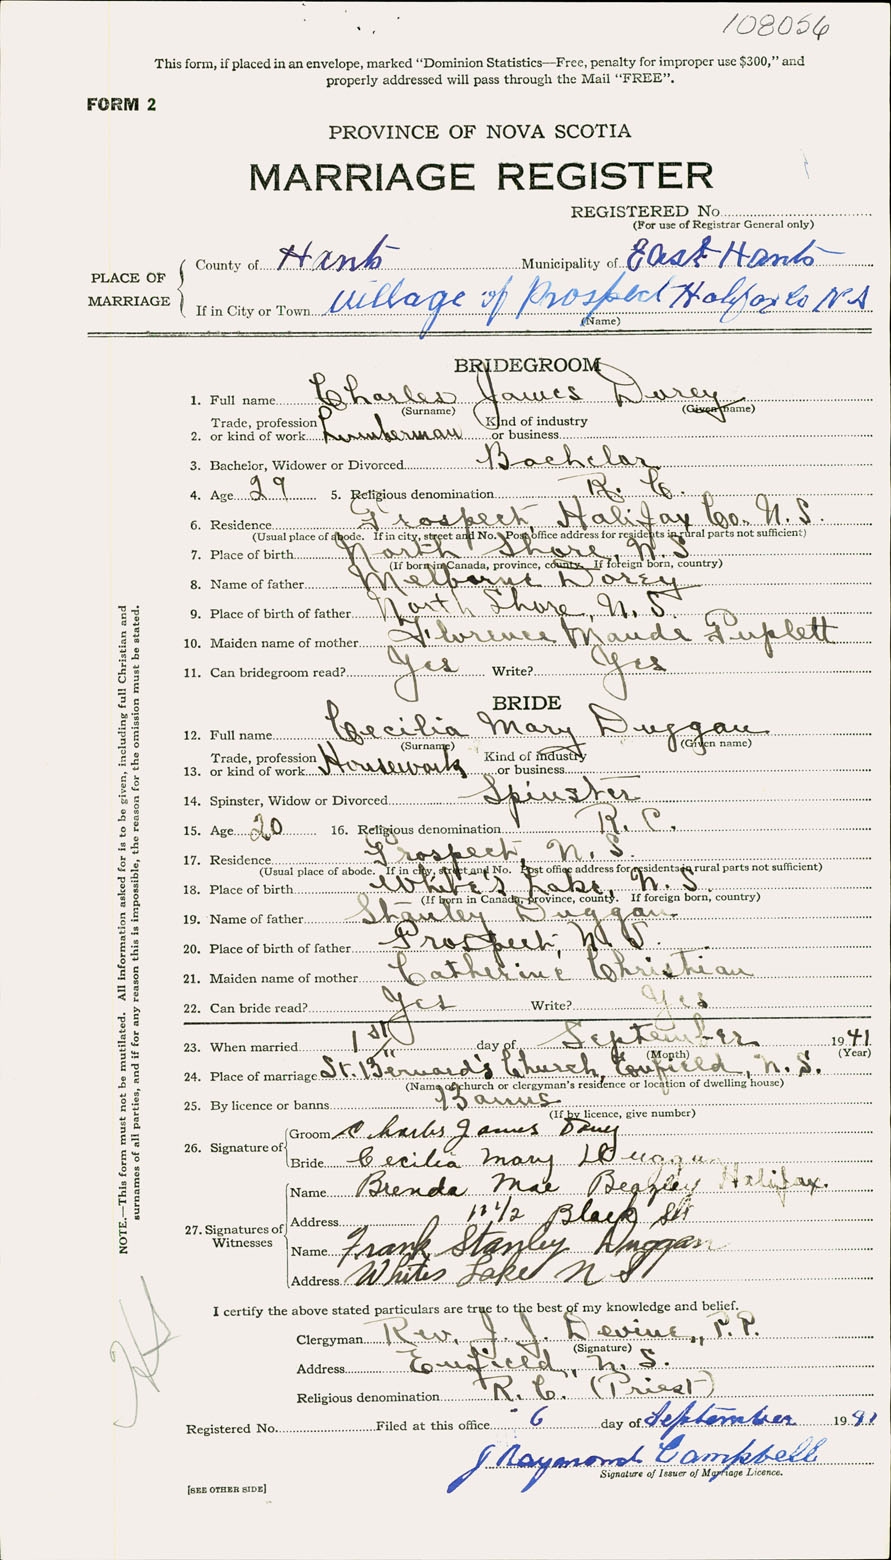 108056
This form, if placed in an envelope, marked "Dominion Statistics—Free, penalty for improper use $300," and
properly addressed will pass through the Mail "FREE".
FORM 2
PROVINCE OF NOVA SCOTIA
MARRIAGE REGISTER
REGISTERED No.
(For use of Registrar General only)
PLACE OF MARRIAGE
County of Hants Municipality of East Hants
If in City or Town Village of Prospect Halifax Co N.S
(Name)
BRIDEGROOM
1. Full name Charles James Dorey
(Surname) (Given name)
Trade, profession Kind of industry
2. or kind of work Lumberman or business
3. Bachelor, Widower or Divorced Bachelor
4. Age 29 5. Religious denomination R. C.
6. Residence Prospect, Halifax Co. N.S.
(Usual place of abode. If in city, street and No. Post office address for residents in rural parts not sufficient)
7. Place of birth North Shore, N.S
(If born in Canada, province, county. If foreign born, country)
8. Name of father Melborne Dorey
9. Place of birth of father North Shore, N.S
10. Maiden name of mother Florence Maude Puplett
11. Can bridegroom read? Yes Write? Yes
BRIDE
12. Full name Cecilia Mary Duggan
(Surname) (Given name)
Trade, profession Kind of industry
13. or kind of work Housework or business
14. Spinster, Widow or Divorced Spinster
15. Age 20 16. Religious denomination R.C.
17. Residence Prospect, N.S.
(Usual place of abode. If in city, street and No. Post office address for residents in rural parts not sufficient)
18. Place of birth White's Lake, N.S.
(If born in Canada, province, county. If foreign born, country)
19. Name of father Stanley Duggan
20. Place of birth of father Prospect, N.S.
21. Maiden name of mother Catherine Christian
22. Can bride read? Yes Write? Yes
23. When married 1st day of September 1941
(Month) (Year)
24. Place of marriage St. Bernard's Church, Enfield, N.S.
(Name of church or clergyman's residence or location of dwelling house)
25. By licence or banns Banns
(If by licence, give number)
26. Signature of
Groom Charles James Dorey
Bride Cecilia Mary Duggan
27. Signatures of Witnesses
Name Brenda Mae Beazley Halifax.
Address 1/2 Black St
Name Frank Stanley Duggan
Address Whites Lake N S
I certify the above stated particulars are true to the best of my knowledge and belief.
Clergyman Rev. J. J. Devine, P.P.
(Signature)
Address Enfield, N.S.
Religious denomination R.C. (Priest)
Registered No. Filed at this office 6 day of September 1941
J Raymond Campbell
Signature of Issuer of Marriage Licence.
[SEE OTHER SIDE]
NOTE.—This form must not be mutilated. All information asked for is to be given, including full Christian and
surnames of all parties, and if for any reason this is impossible, the reason for the omission must be stated.